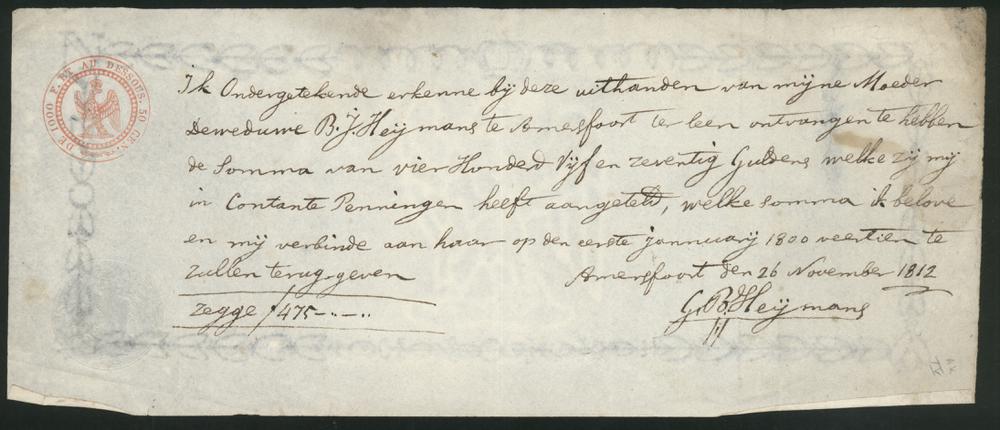 DE 1000 F. ET AU DESSOUS. 50 CEN.
Ik Ondergetekende erkenne bij deze uithanden van mijne Moeder
Deweduwe B. J. Heijmans te Amersfoort ter leen ontvangen te hebben
de Somma van vier Honderd Vijf en zeventig Guldens welke zij mij
in Contante Penningen heeft aangeteld, welke somma ik belove
en mij verbinde aan haar op den eerste jannuarij 1800 veertien te
zullen terug geven
Amersfoort den 26 November 1812
zegge ƒ 475-..-..
G. B. Heijmans